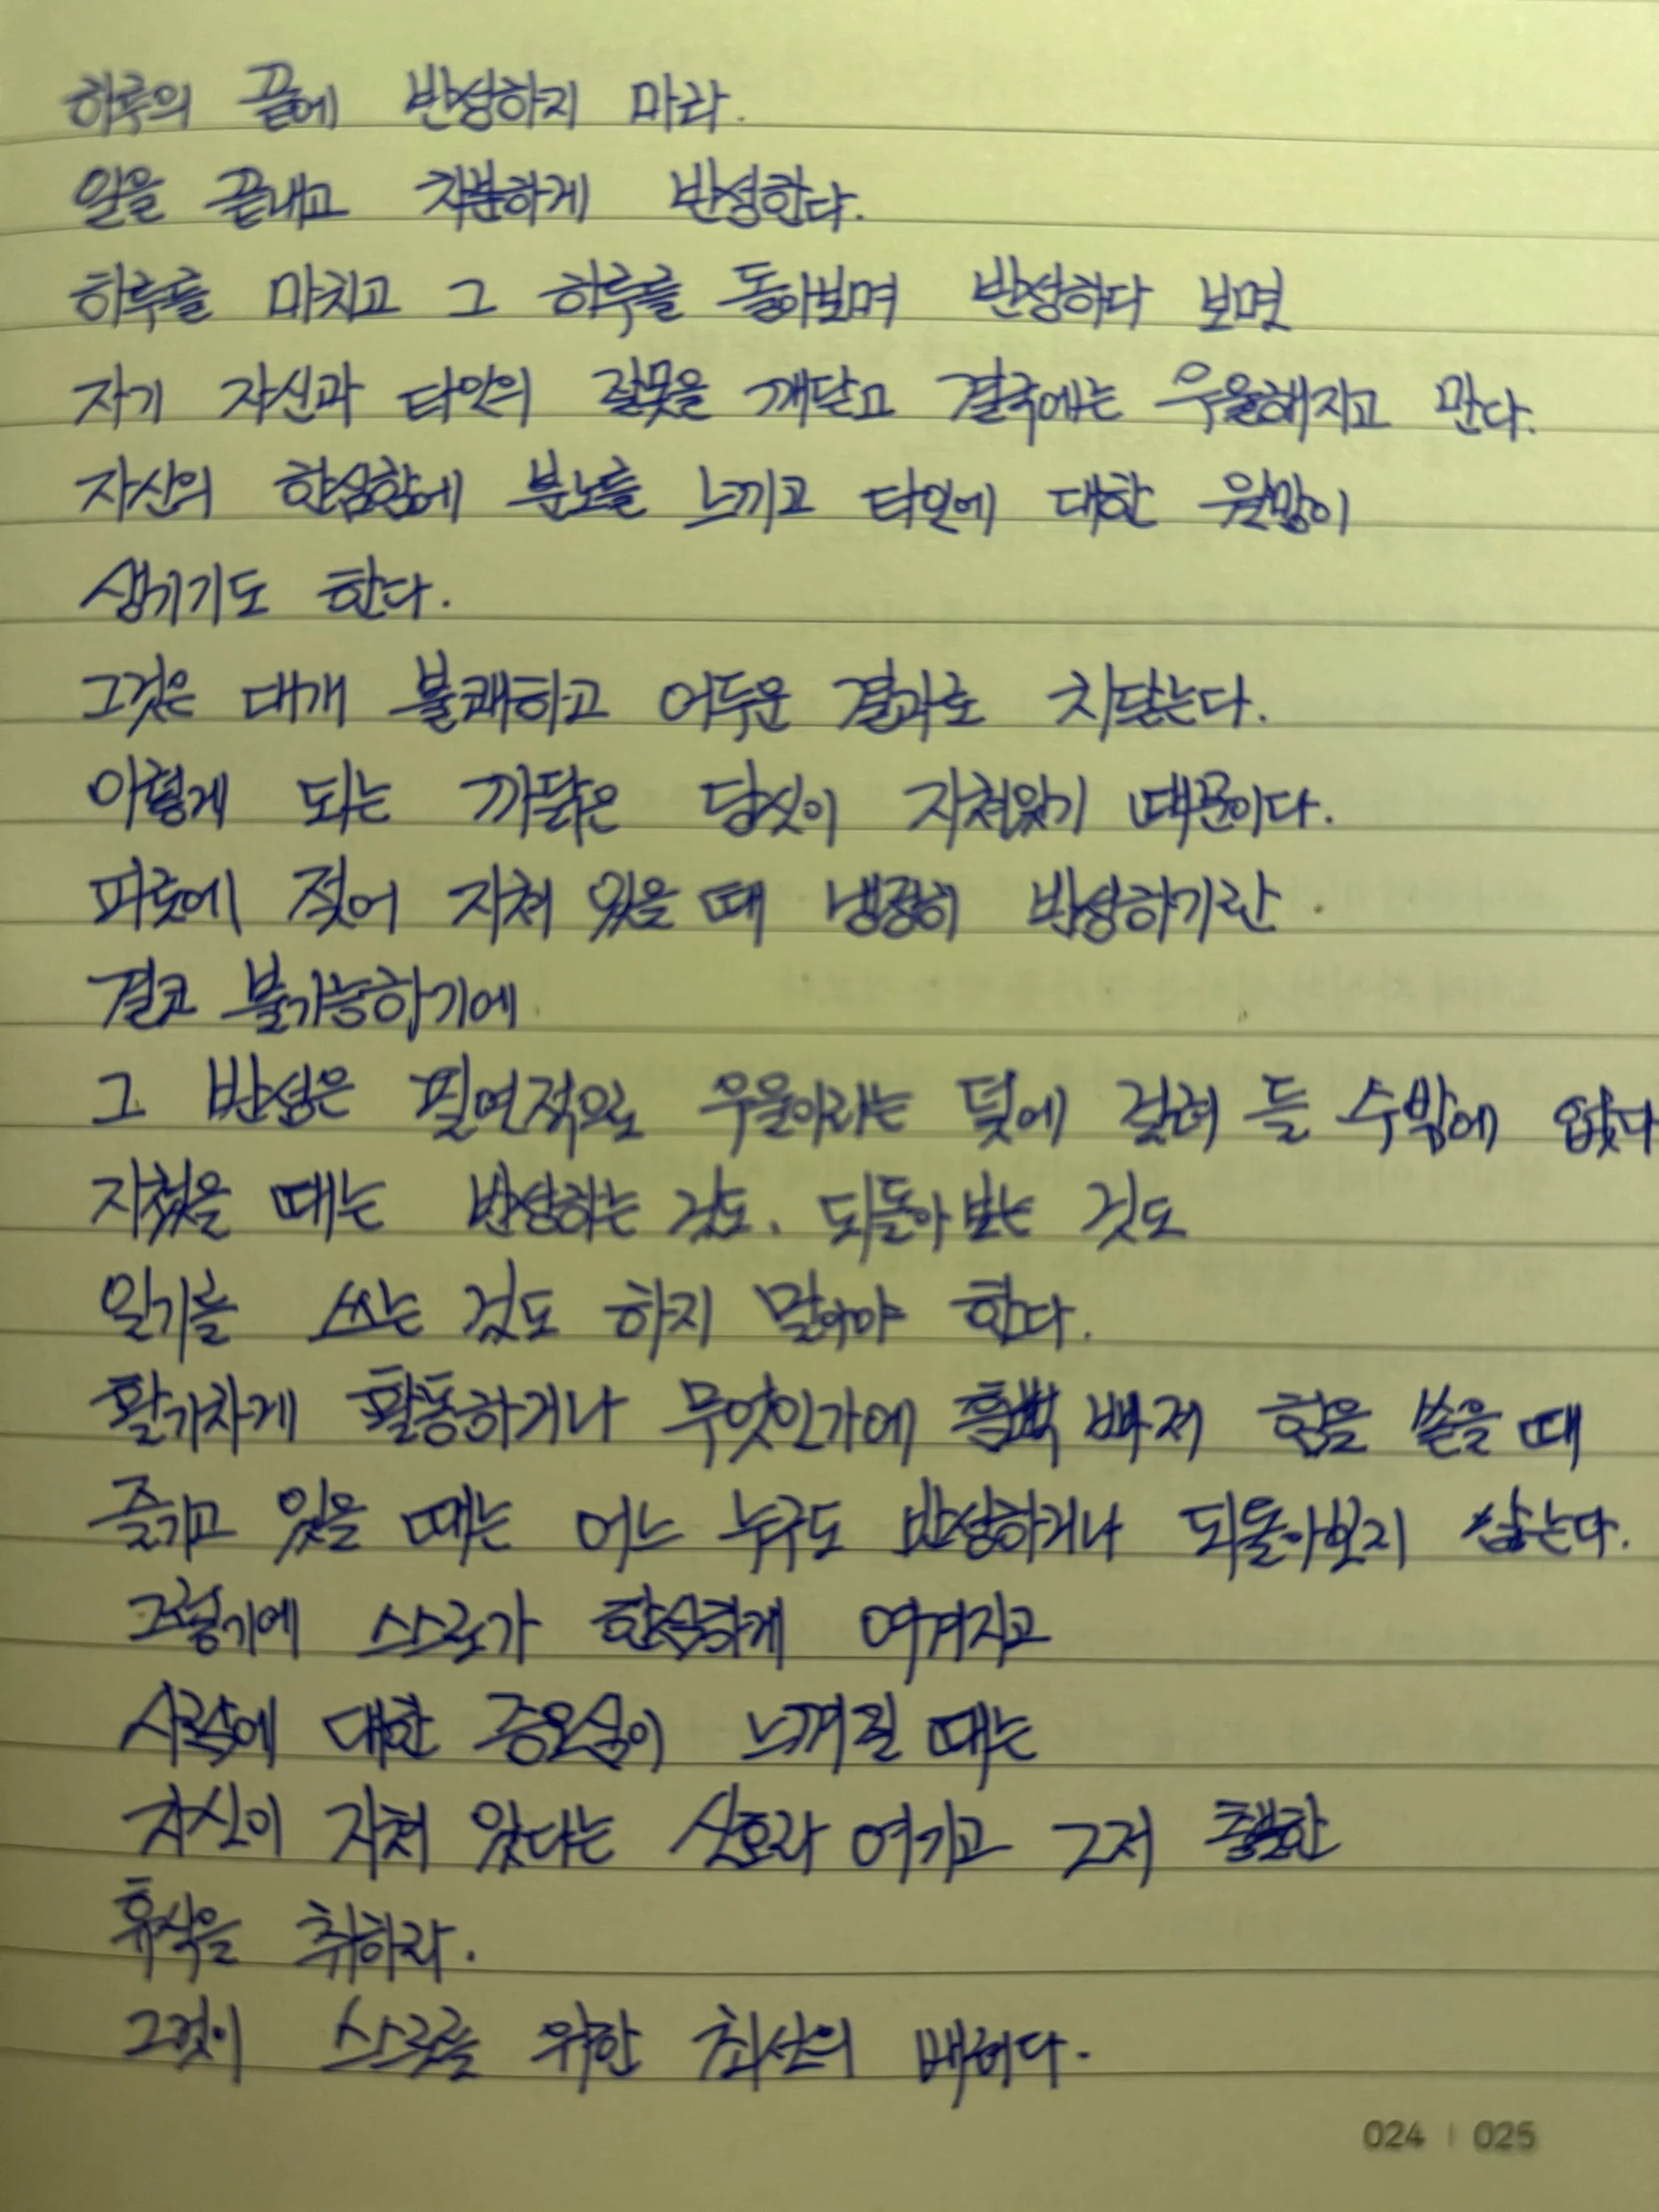 하루의 끝에 반성하지 마라.
일을 끝내고 차분하게 반성한다.
하루를 마치고 그 하루를 돌아보며 반성하다 보면
자기 자신과 타인의 잘못을 깨닫고 결국에는 우울해지고 만다.
자신의 한심함에 분노를 느끼고 타인에 대한 원망이
생기기도 한다.
그것은 대개 불쾌하고 어두운 결과로 치닫는다.
이렇게 되는 까닭은 당신이 지쳐있기 때문이다.
피로에 젖어 지쳐 있을 때 냉정히 반성하기란
결코 불가능하기에
그 반성은 필연적으로 우울이라는 덫에 걸려 들 수밖에 없다
지쳤을 때는 반성하는 것도, 되돌아 보는 것도
일기를 쓰는 것도 하지 말아야 한다.
활기차게 활동하거나 무엇인가에 흠뻑 빠져 힘을 쏟을 때
즐기고 있을 때는 어느 누구도 반성하거나 되돌아보지 않는다.
그렇기에 스스로가 한심하게 여겨지고
사람에 대한 증오심이 느껴질 때는
자신이 지쳐 있다는 신호라 여기고 그저 충분한
휴식을 취하라.
그것이 스스로를 위한 최선의 배려다.
024 | 025